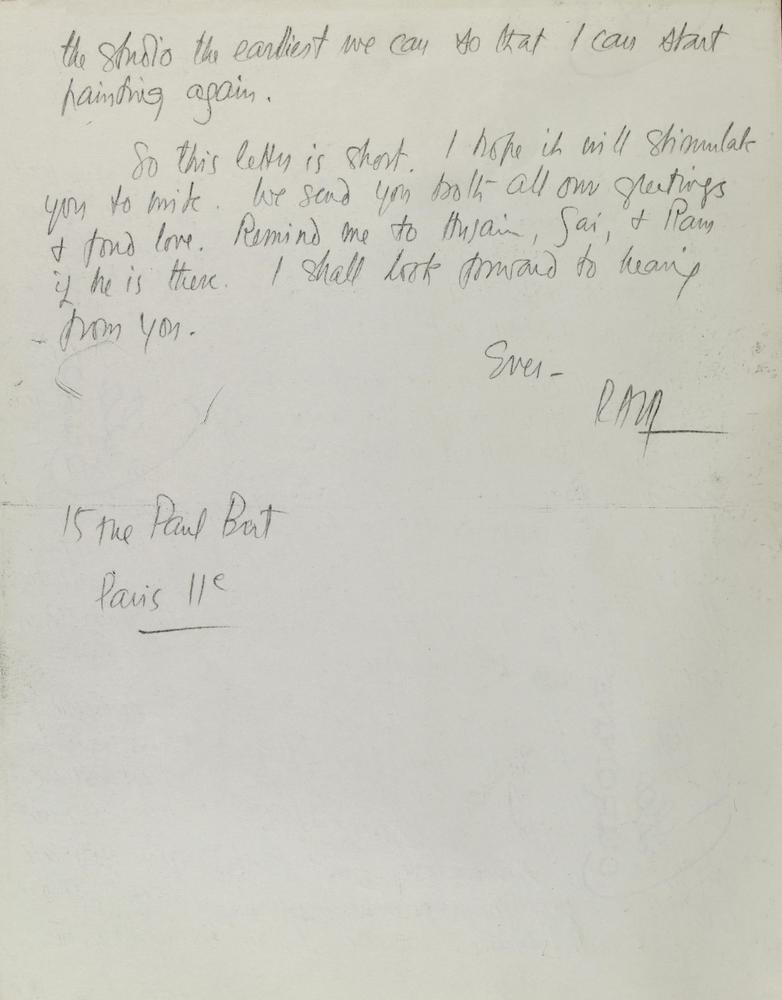 the studio the earliest we can so that I can start
painting again.
So this letter is short. I hope it will stimulate
you to write. We send you both all our greetings
& fond love. Remind me to Husain, Gai, & Ram
if he is there. I shall look forward to hearing
from you.
Ever -
15 rue Paul Bert
Paris 11e